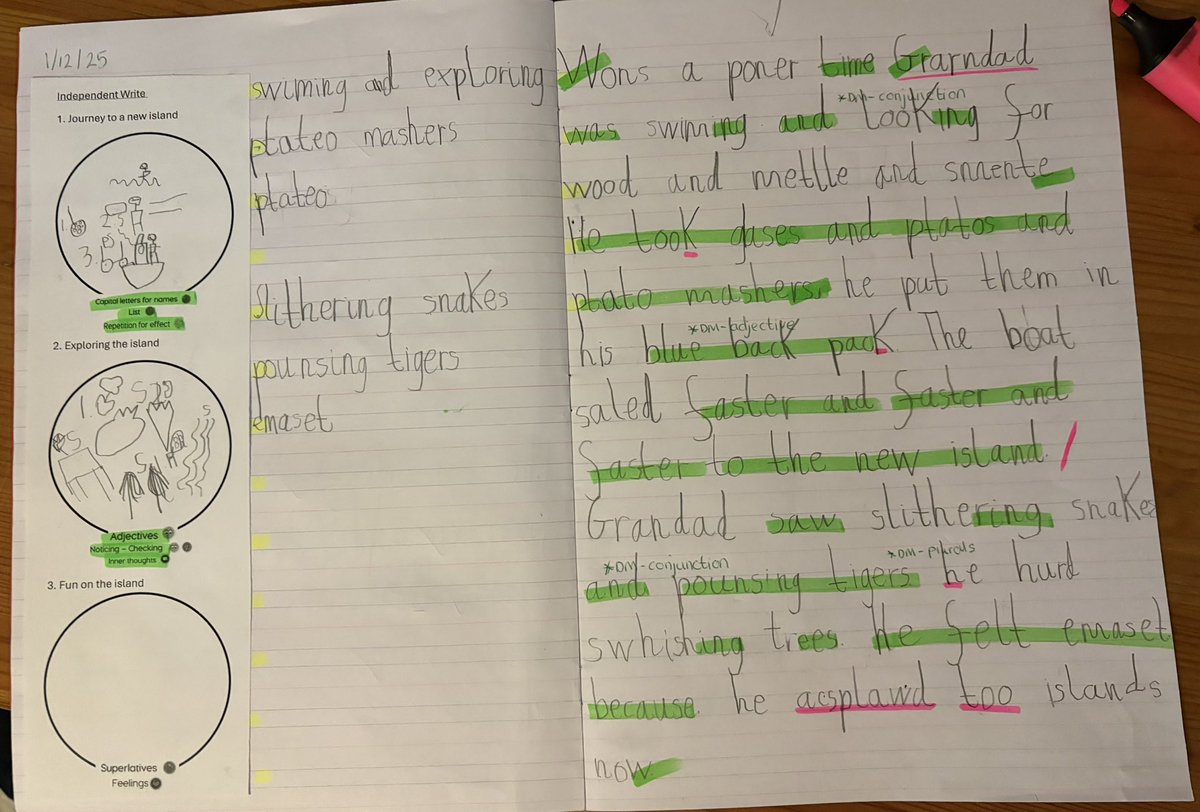 1/12/25
Independent Write
1. Journey to a new island
Capital letters for names
List
Repetition for effect
2. Exploring the island
Adjectives
Noticing – Checking
Inner thoughts
3. Fun on the island
Superlatives
Feelings
swiming and exploring
ptateo mashers
ptateo
slithering snakes
pounsing tigers
emaset
Wons a poner time Grarndad
*DM-conjunction
was swiming and looking for
wood and metlle and
He took gases and ptatos and
ptato mashers, he put them in
*DM-adjective
his blue back pack. The boat
saled faster and faster and
faster to the new island. /
Grandad saw slithering snakes
*DM-conjunction *DM-plurals
and pounsing tigers he hurd
swhishing trees. He felt emaset
because. he acsplawd too islands
now.